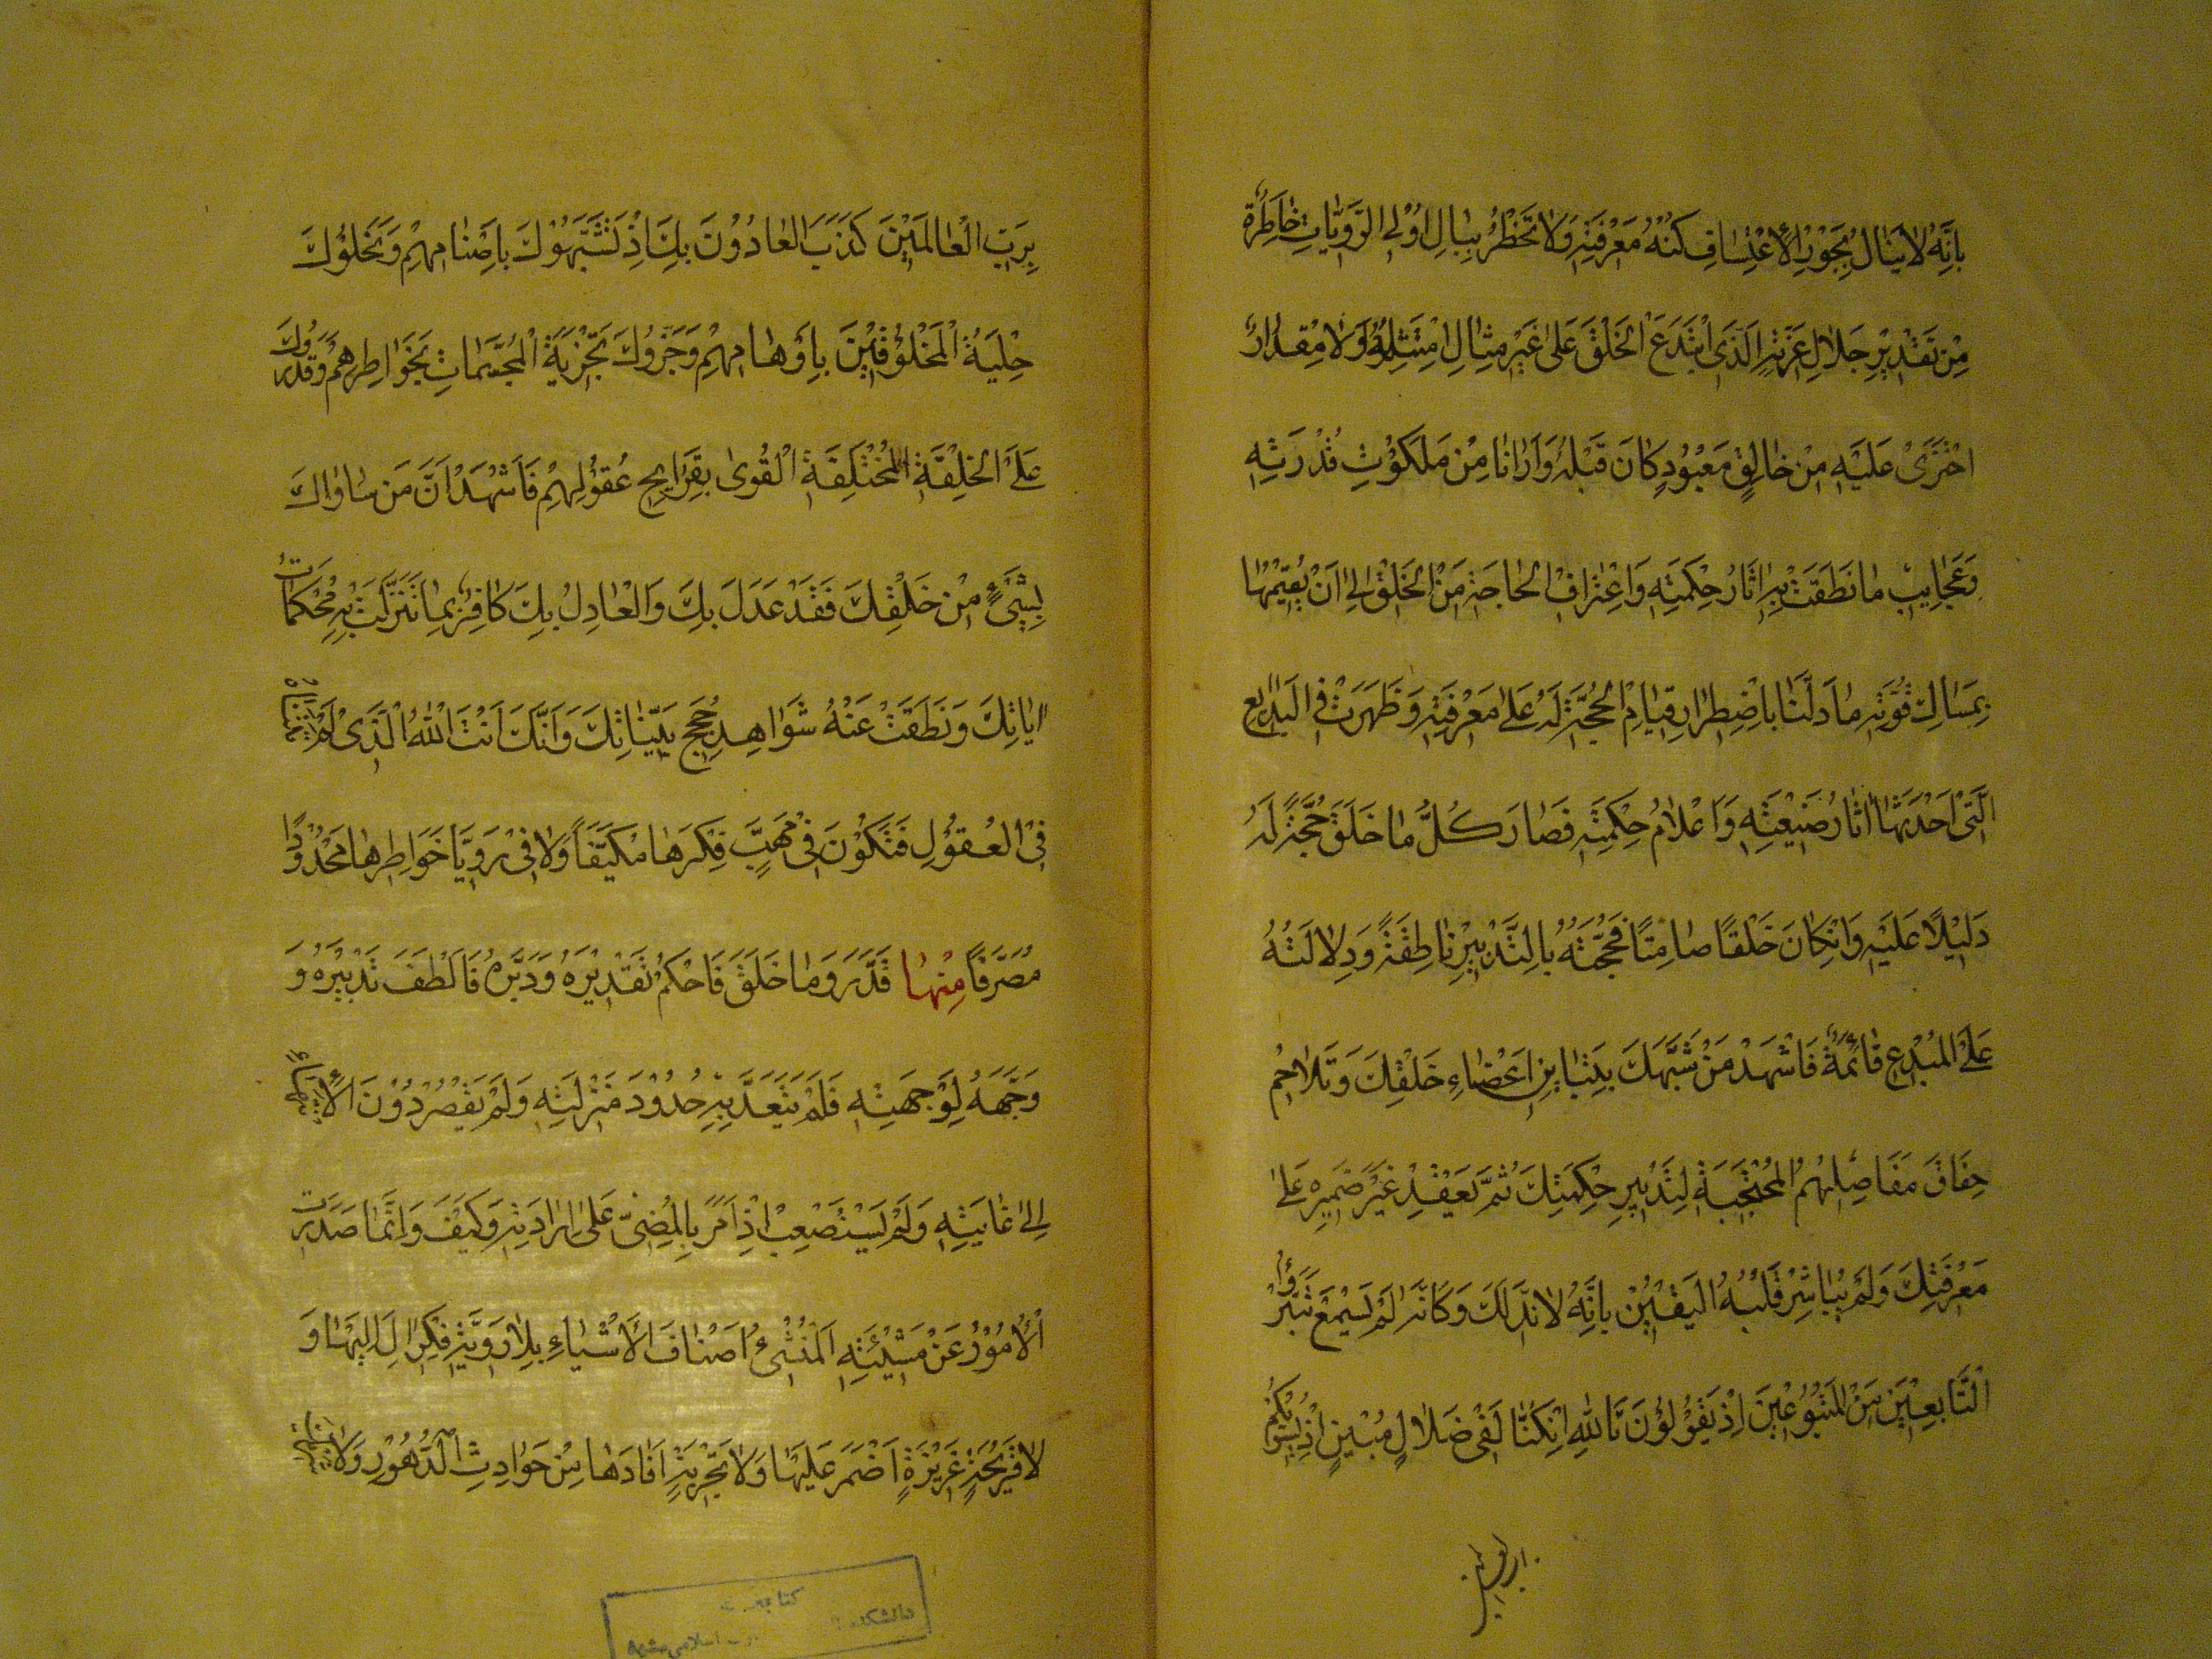 بِاَنَّهُ لَا يُنَالُ بِجَوْرِ الْاِعْتِسَافِ كُنْهُ مَعْرِفَتِهِ وَلَا تَخْطُرُ بِبَالِ اُوْلِي الرَّوِيَّاتِ خَاطِرَةٌ
مِنْ تَقْدِيْرِ جَلَالِ عِزَّتِهِ الَّذِى ابْتَدَعَ الْخَلْقَ عَلَى غَيْرِ مِثَالٍ امْتَثَلَهُ وَلَا مِقْدَارٍ
احْتَذَى عَلَيْهِ مِنْ خَالِقٍ مَعْبُوْدٍ كَانَ قَبْلَهُ وَاَرَانَا مِنْ مَلَكُوْتِ قُدْرَتِهِ
وَعَجَايِبِ مَا نَطَقَتْ بِهِ اثَارُ حِكْمَتِهِ وَاعْتِرَافِ الْحَاجَةِ مِنَ الْخَلْقِ اِلَى اَنْ يُقِيْمَهَا
بِمَسَاكِ قُوَّتِهِ مَا دَلَّنَا بِاضْطِرَارِ قِيَامِ الْحُجَّةِ لَهُ عَلَى مَعْرِفَتِهِ وَظَهَرَتْ فِى الْبَدَايِعِ
الَّتِىْ اَحْدَثَهَا اثَارُ صَنْعَتِهِ وَاَعْلَامُ حِكْمَتِهِ فَصَارَ كُلُّ مَا خَلَقَ حُجَّةً لَهُ
دَلِيْلًا عَلَيْهِ وَاِنْ كَانَ خَلْقًا صَامِتًا فَحُجَّتُهُ بِالتَّدْبِيْرِ نَاطِقَةٌ وَدِلَالَتُهُ
عَلَى الْمُبْدِعِ قَائِمَةٌ فَاَشْهَدُ مَنْ شَبَّهَكَ بِتَبَايِنِ اَعْضَاءِ خَلْقِكَ وَتَلَاحُمِ
حِقَاقِ مَفَاصِلِهُمُ الْمُحْتَجِبَةِ لِتَدْبِيْرِ حِكْمَتِكَ ثُمَّ يَعْقِدْ غَيْرَ ضَمِيْرِهِ عَلَى
مَعْرِفَتِكَ وَلَمْ يُبَاشِرْ قَلْبُهُ الْيَقِيْنَ بِاَنَّهُ لَا نِدَّ لَكَ وَكَاَنَّهُ لَمْ يَسْمَعْ تَبَرُّؤَ
التَّابِعِيْنَ مِنَ الْمَتْبُوْعِيْنَ اِذْ يَقُوْلُوْنَ تَاللهِ اِنْ كُنَّا لَفِىْ ضَلَالٍ مُبِيْنٍ اِذْ نُسَوِّيْكُمْ
بِرَبِّ الْعَالَمِيْنَ كَذَبَ الْعَادُوْنَ بِكَ اِذْ شَبَّهُوْكَ بِاَصْنَامِهِمْ وَنَحَلُوْكَ
حِلْيَةَ الْمَخْلُوْقِيْنَ بِاَوْهَامِهِمْ وَجَزَّؤُكَ تَجْزِيَةَ الْمُجَسَّمَاتِ بِخَوَاطِرِهِمْ وَقَدَّرُوْكَ
عَلَى الْخِلْقَةِ الْمُخْتَلِفَةِ الْقُوَى بِقَرَايِحِ عُقُوْلِهِمْ فَاَشْهَدُ اَنَّ مَنْ سَاوَاكَ
بِشَيْءٍ مِنْ خَلْقِكَ فَقَدْ عَدَلَ بِكَ وَالْعَادِلُ بِكَ كَافِرٌ بِمَا تَنَزَّلَتْ بِهِ مُحْكَمَاتُ
ايَاتِكَ وَنَطَقَتْ عَنْهُ شَوَاهِدُ حُجَجِ بَيِّنَاتِكَ وَاَنَّكَ اَنْتَ اللهُ الَّذِىْ لَمْ تَتَنَاهَ
فِى الْعُقُوْلِ فَتَكُوْنَ فِىْ مَهَبِّ فِكَرِهَا مُكَيَّفًا وَلَا فِىْ رَوِيَّا خَوَاطِرِهَا مَحْدُوْدًا
مُصَرَّفًا مِنْهَا قَدَّرَ وَمَا خَلَقَ فَاَحْكَمَ تَقْدِيْرَهُ وَدَبَّرَهُ فَاَلْطَفَ تَدْبِيْرَهُ وَ
وَجَّهَهُ لِوِجْهَتِهِ فَلَمْ يَتَعَدَّ بِهِ حُدُوْدَ مَنْزِلَتِهِ وَلَمْ يَقْصُرْ دُوْنَ الْاِنْتِهَاءِ
اِلَى غَايَتِهِ وَلَمْ يَسْتَصْعِبْ اِذْ اَمَرَ بِالْمُضِىِّ عَلَى اِرَادَتِهِ وَكَيْفَ وَاِنَّمَا صَدَرَتِ
الْاُمُوْرُ عَنْ مَشِيْئَتِهِ الْمُنْشِئُ اَصْنَافَ الْاَشْيَاءِ بِلَا رَوِيَّةِ فِكْرٍ الَ اِلَيْهَا وَ
لَا قَرِيْحَةِ غَرِيْزَةٍ اَضْمَرَ عَلَيْهَا وَلَا تَجْرِبَةٍ اَفَادَهَا مِنْ حَوَادِثِ الدُّهُوْرِ وَلَا
برب العالمين